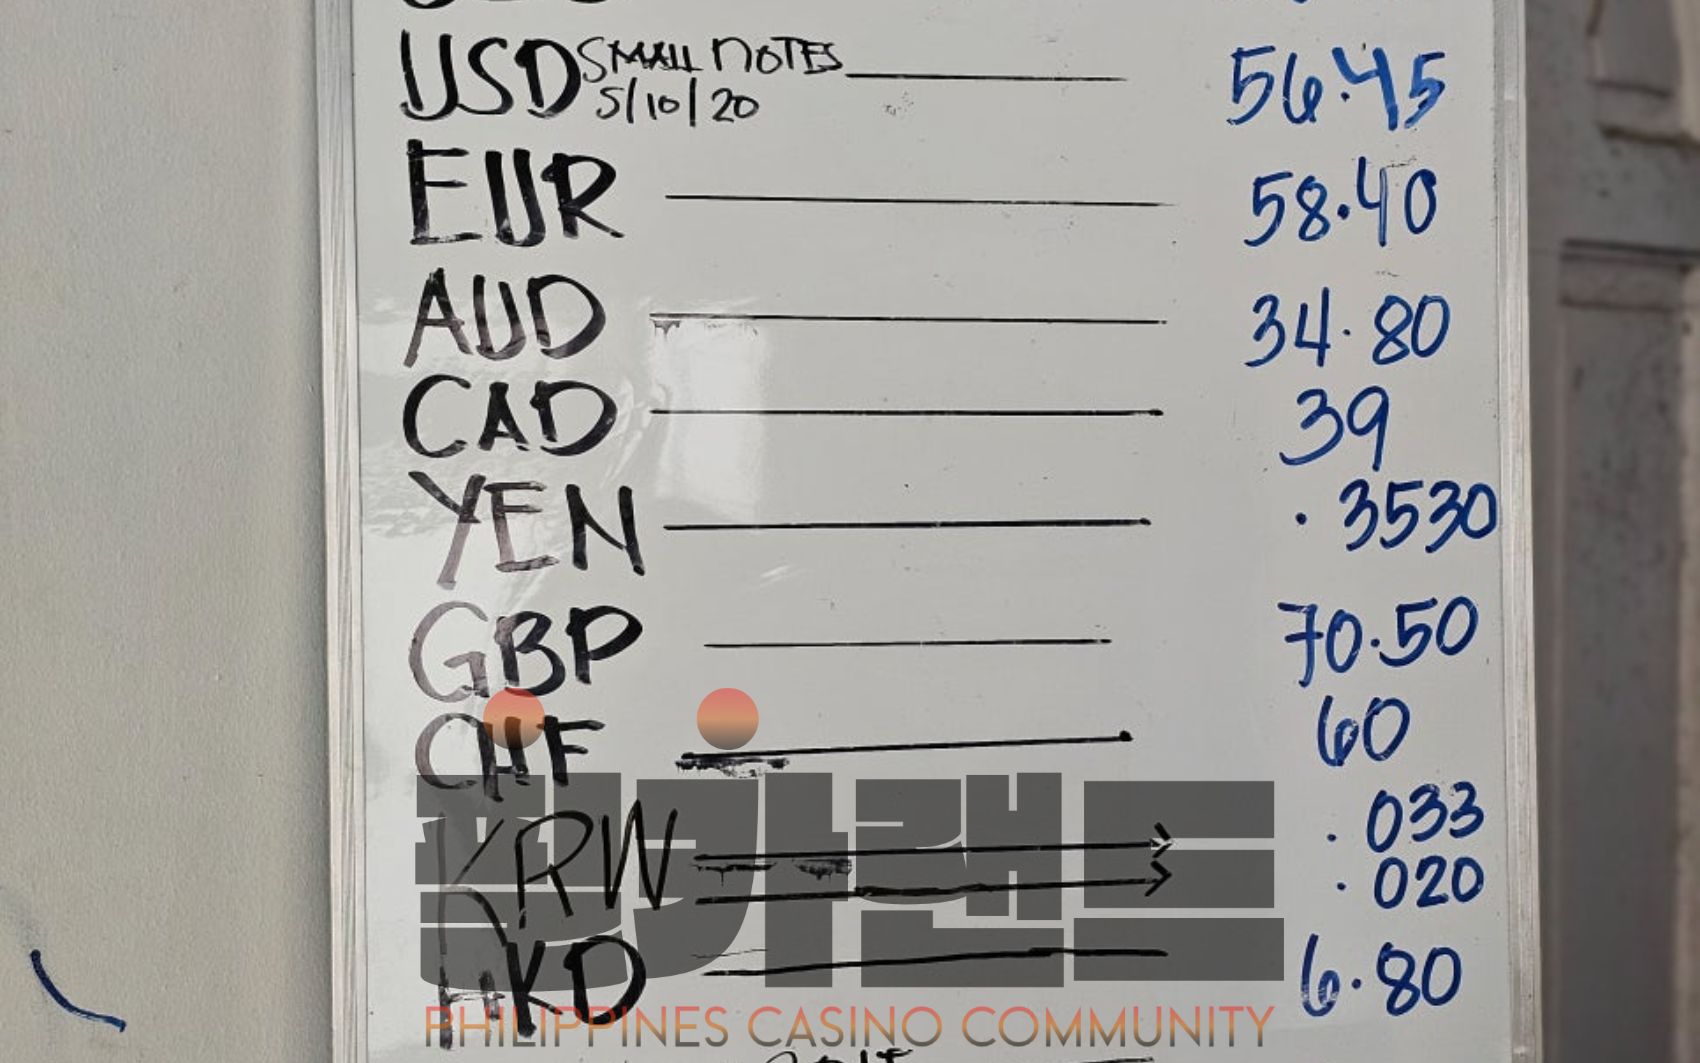 USD SMALL NOTES 56.45
5/10/20
EUR 58.40
AUD 34.80
CAD 39
YEN .3530
GBP 70.50
CHF 60
KRW .033
.020
HKD 6.80
필카랜드
PHILIPPINES CASINO COMMUNITY